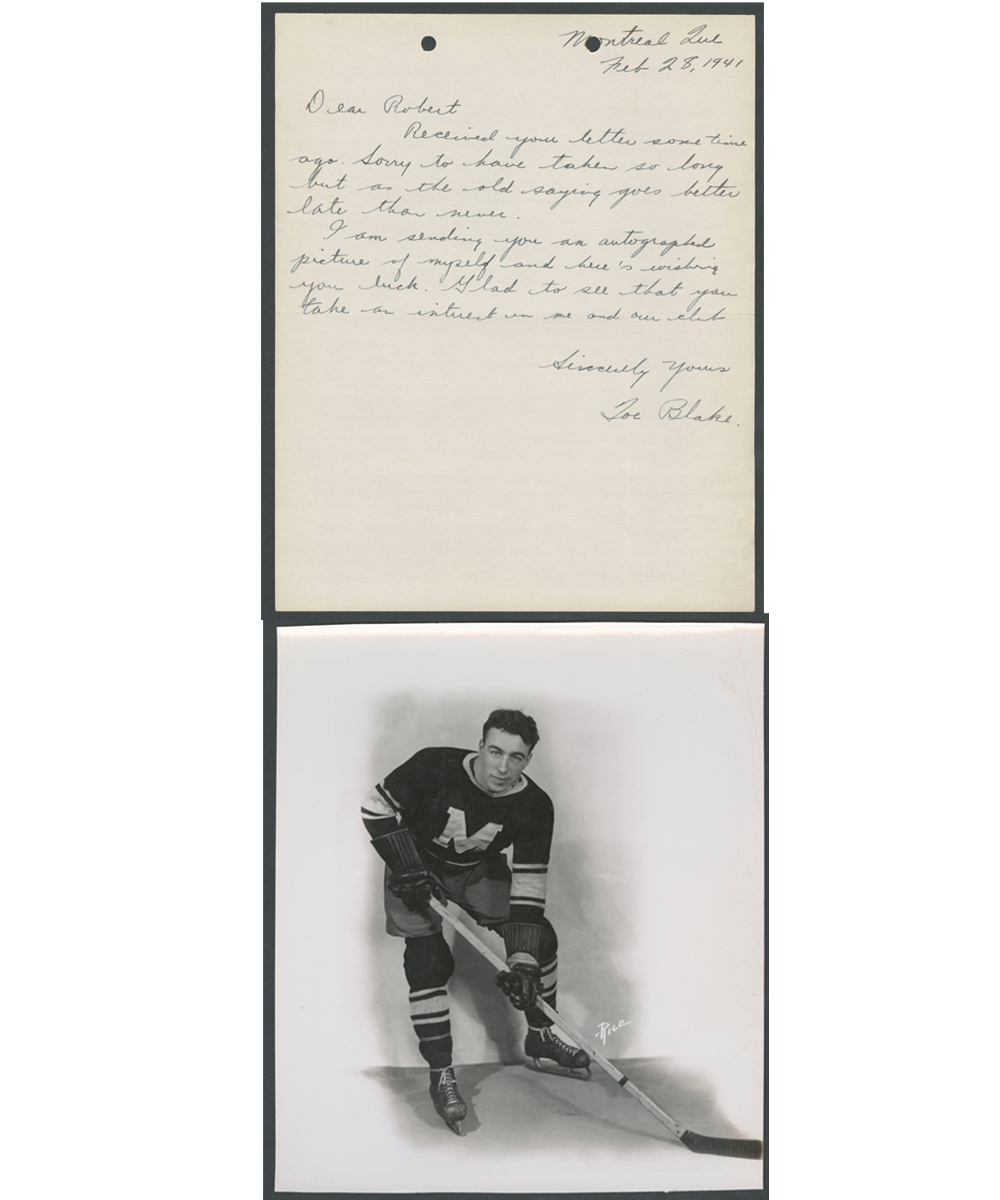 Montreal Que
Feb 28, 1941
Dear Robert
Received your letter some time
ago. Sorry to have taken so long
but as the old saying goes better
late than never.
I am sending you an autographed
picture of myself and here's wishing
you luck. Glad to see that you
take an interest in me and our club
Sincerely Yours
Toe Blake.
M
Rice